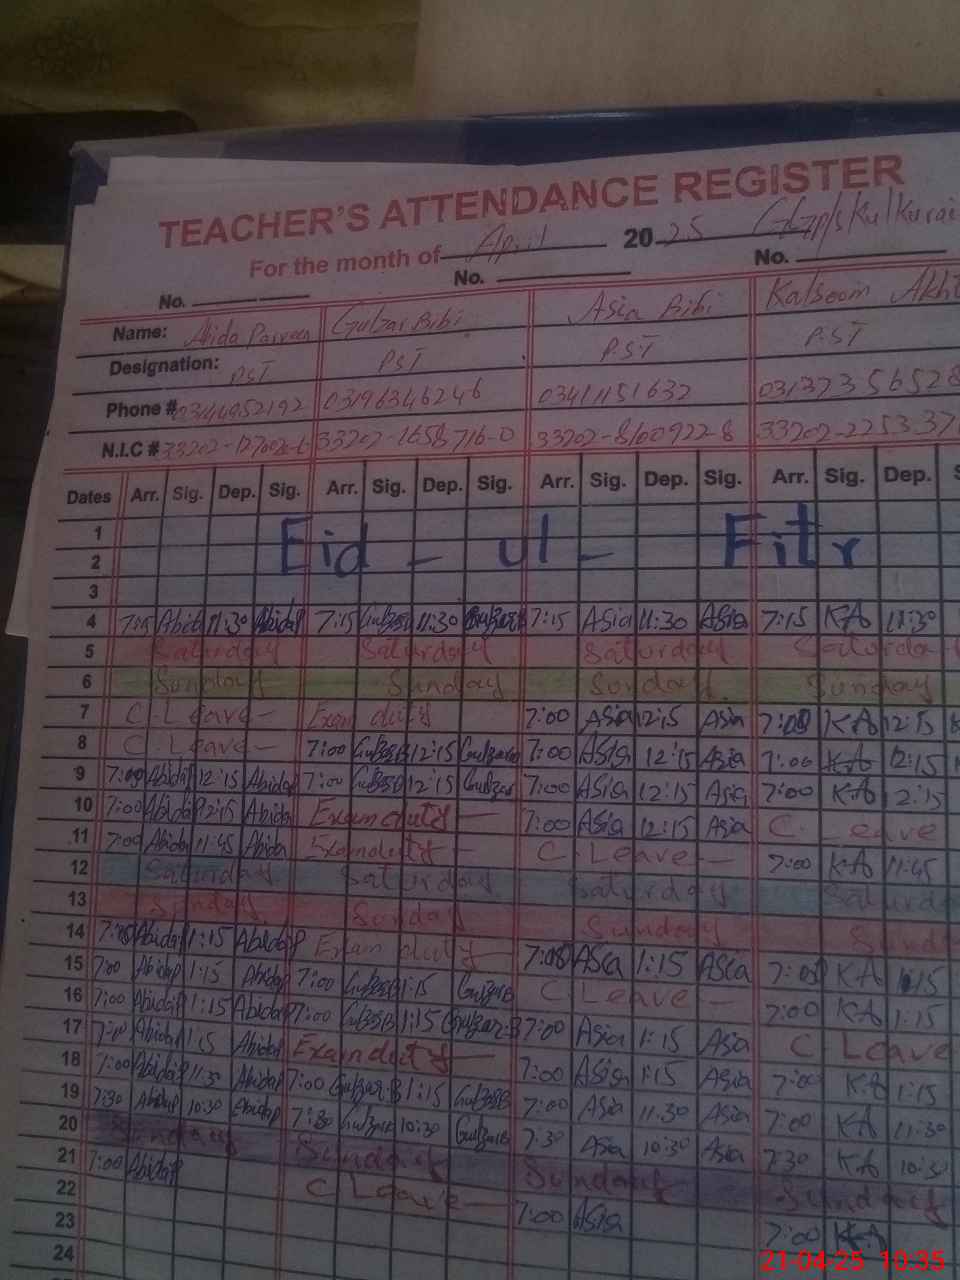 TEACHER'S ATTENDANCE REGISTER
For the month of April 2025
No. No. No.
Name: Abida Parveen Gulzar Bibi Asia Bibi Kalsoom
Designation: PST PST P.ST P.ST
Phone # 03196346246 03411151632 03137356528
N.I.C # 33202-1658716-0 33202-8160922-8 33202-2253
Dates Arr. Sig. Dep. Sig. Arr. Sig. Dep. Sig. Arr. Sig. Dep. Sig. Arr. Sig. Dep. S
1
Eid - ul - Fitr
2
3
4 7:15 Abida 11:30 AbidaP 7:15 11:30 7:15 Asia 11:30 Asia 7:15 KA 11:30
5 Saturday Saturday Saturday
6 Sunday Sunday Sunday Sunday
7 C. Leave - Exam duty 7:00 Asia 12:15 Asia 7:00 KA 12:15
8 C. Leave - 7:00 GulzarB 12:15 GulzarB 7:00 Asia 12:15 Asia 7:00 KA 12:15
9 7:00 AbidaP 12:15 AbidaP 7:00 GulzarB 12:15 GulzarB 7:00 Asia 12:15 Asia 7:00 KA 12:15
10 7:00 AbidaP 12:15 AbidaP Exam duty - 7:00 Asia 12:15 Asia C. Leave
11 7:00 Abida 11:45 Abida Exam duty - C. Leave - 7:00 KA 11:45
12 Saturday Saturday Saturday
13 Sunday Sunday Sunday
14 AbidaP 1:15 AbidaP Exam duty 7:00 Asia 1:15 Asia 7:00 KA 1:15
15 7:00 AbidaP 1:15 AbidaP 7:00 GulzarB 1:15 GulzarB C. Leave - 7:00 KA 1:15
16 7:00 AbidaP 1:15 AbidaP 7:00 GulzarB 1:15 Gulzar.B 7:00 Asia 1:15 Asia C Leave
17 7:00 AbidaP 1:15 AbidaP Exam duty - 7:00 Asia 1:15 Asia 7:00 KA 1:15
18 7:00 AbidaP 11:30 AbidaP 7:00 Gulzar.B 1:15 GulzarB 7:00 Asia 11:30 Asia 7:00 KA 11:30
19 7:30 AbidaP 10:30 AbidaP 7:30 GulzarB 10:30 GulzarB 7:30 Asia 10:30 Asia 7:30 KA 10:30
20 Sunday Sunday Sunday Sunday
21 7:00 AbidaP C Leave - 7:00 Asia 7:00 KA
22
23
24
21-04-25 10:35